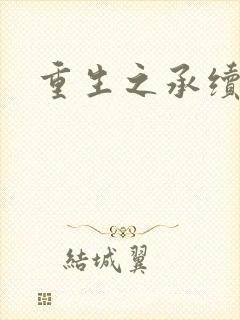 重生之承續
結城翼